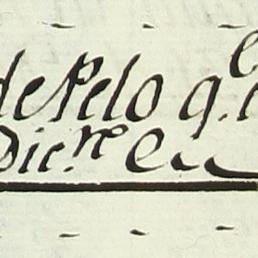 de Pelo q.e
Dic.re e